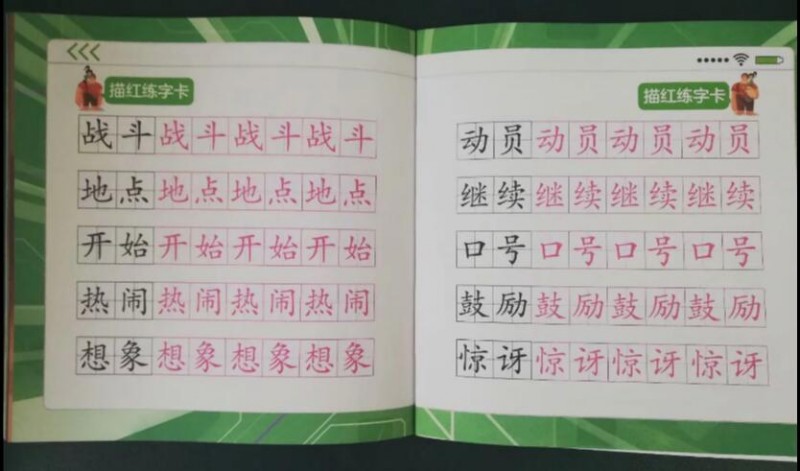 描红练字卡
战斗战斗战斗战斗
地点地点地点地点
开始开始开始开始
热闹热闹热闹热闹
想象想象想象想象
描红练字卡
动员动员动员动员
继续继续继续继续
口号口号口号口号
鼓励鼓励鼓励鼓励
惊讶惊讶惊讶惊讶